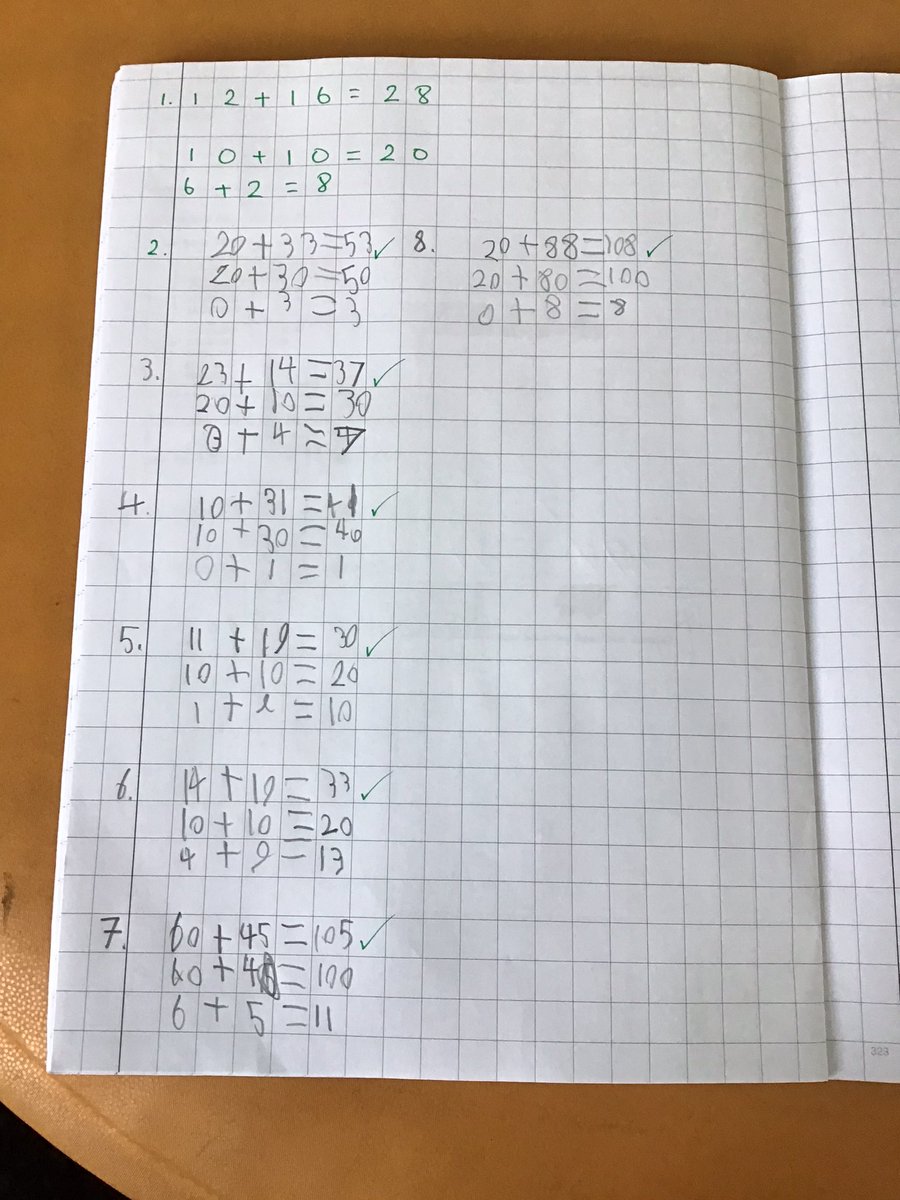 1. 12 + 16 = 28
10 + 10 = 20
6 + 2 = 8
2. 20 + 33 = 53 ✓
20 + 30 = 50
0 + 3 = 3
8. 20 + 88 = 108 ✓
20 + 80 = 100
0 + 8 = 8
3. 23 + 14 = 37 ✓
20 + 10 = 30
3 + 4 = 7
4. 10 + 31 = 41 ✓
10 + 30 = 40
0 + 1 = 1
5. 11 + 19 = 30 ✓
10 + 10 = 20
1 + 9 = 10
6. 14 + 19 = 33 ✓
10 + 10 = 20
4 + 9 = 13
7. 60 + 45 = 105 ✓
60 + 40 = 100
6 + 5 = 11
323